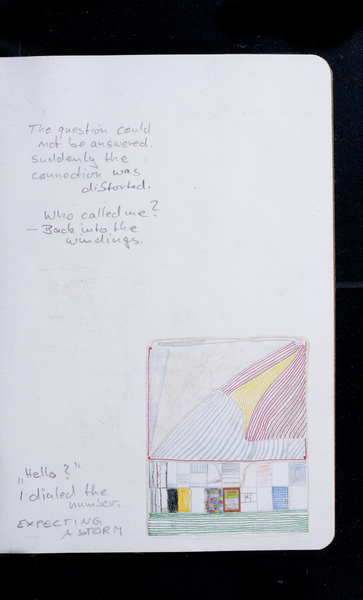 The question could
not be answered.
Suddenly the
connection was
distorted.
Who called me?
— Back into the
windings.
„Hello?"
I dialed the
number.
EXPECTING
A STORM